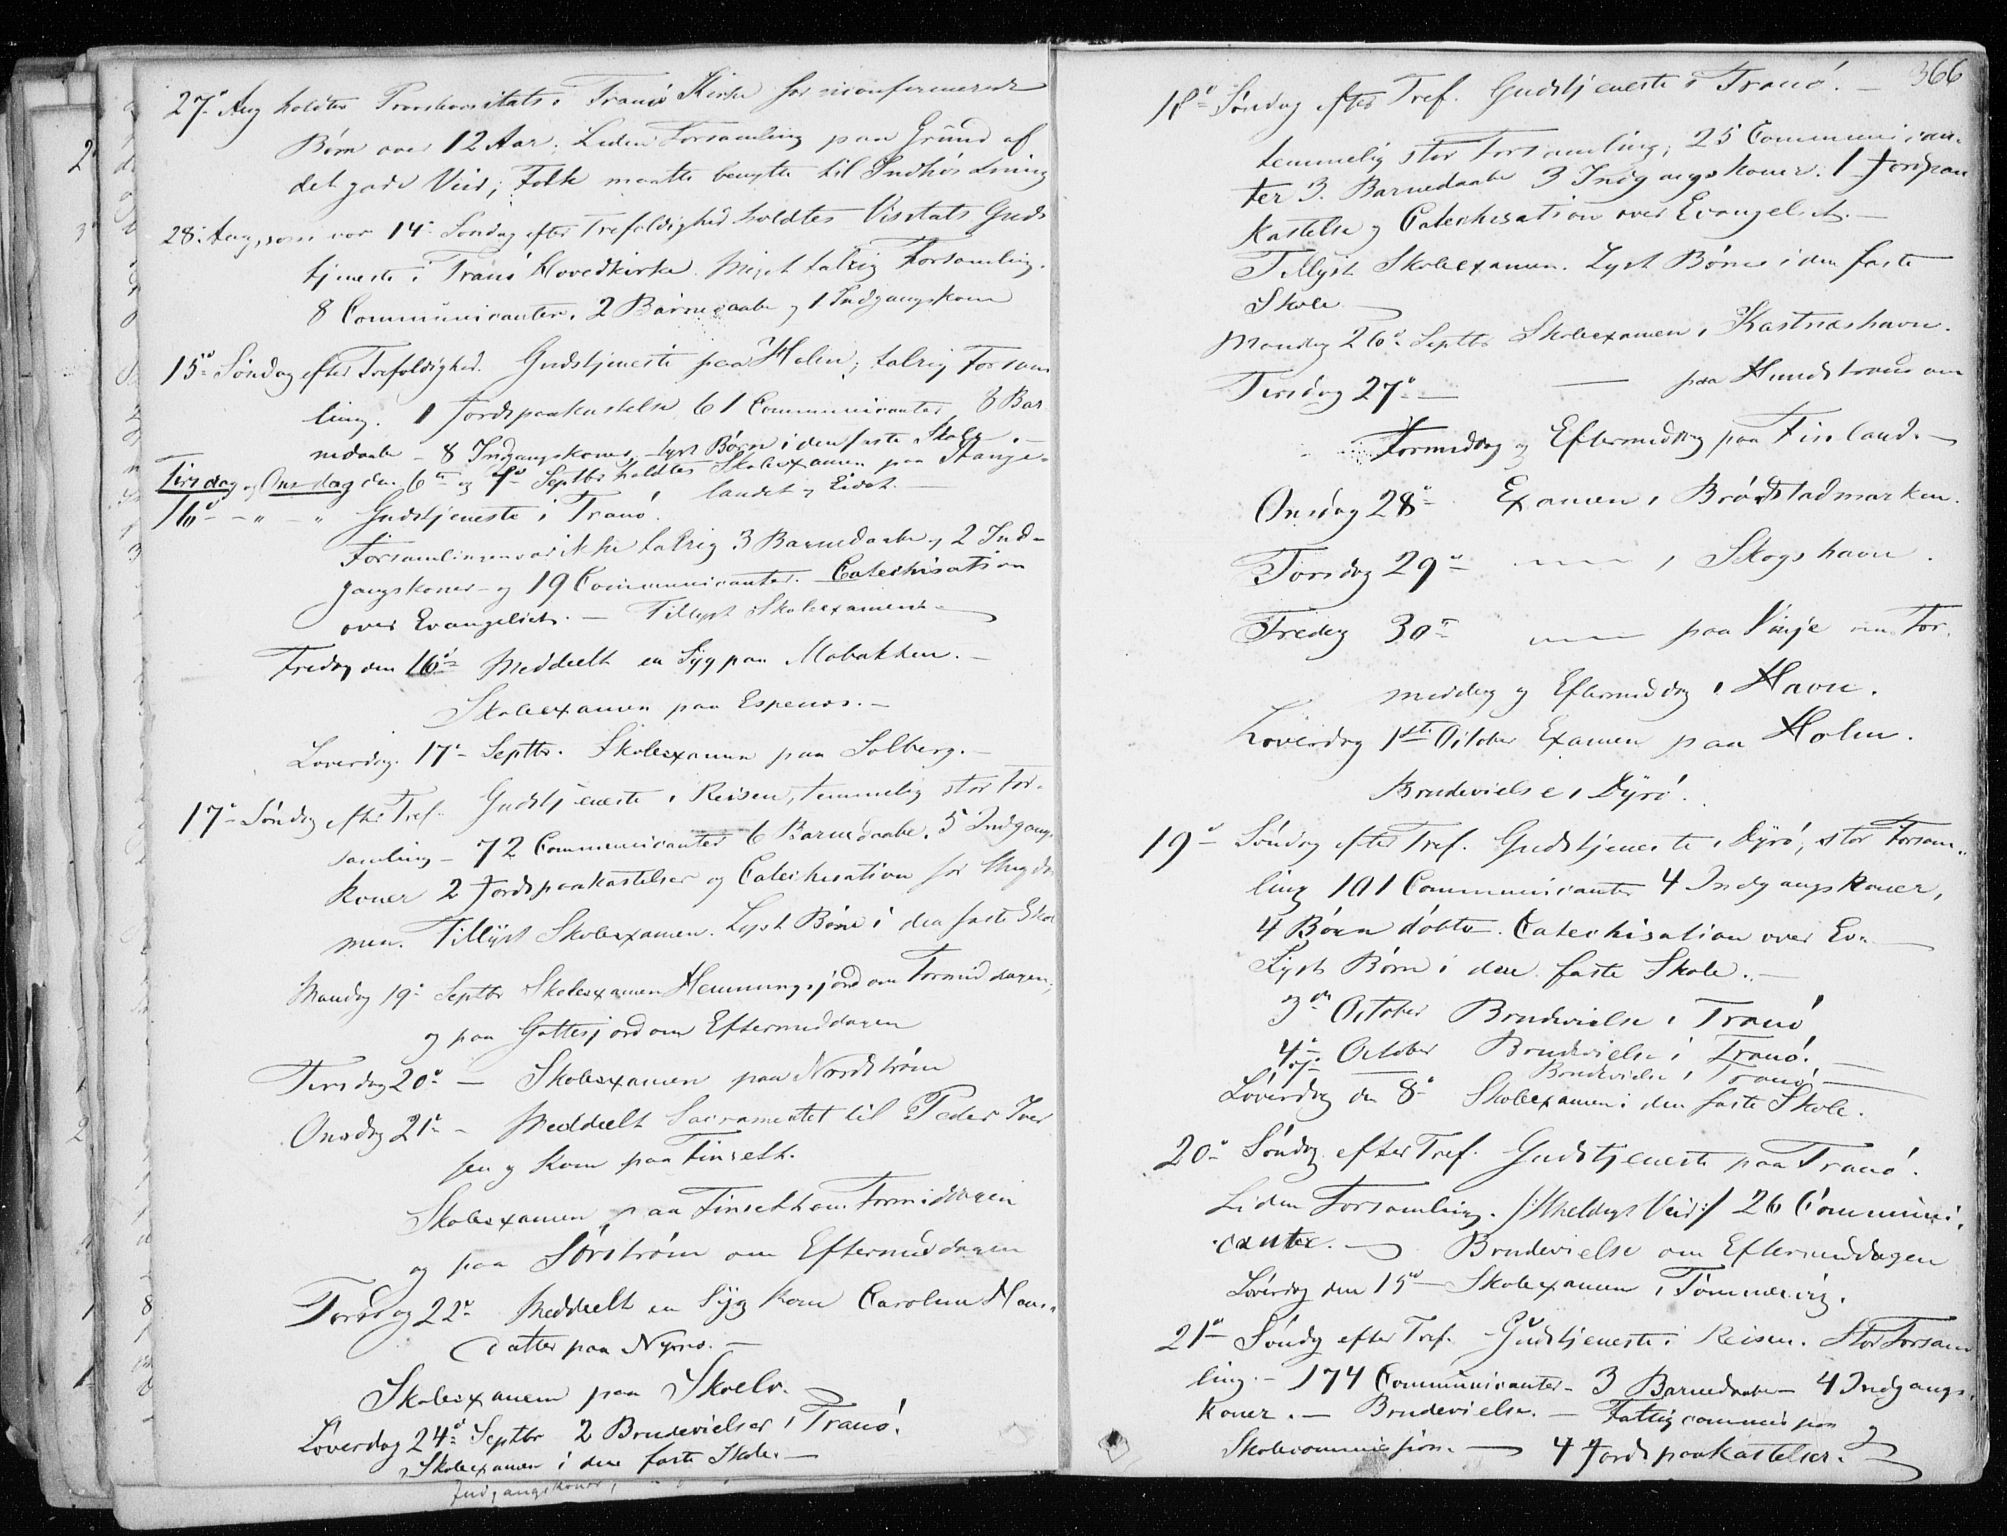 27de Aug holdtes Provstevisitats i Tranö Kirke for nconfirmerede
Børn over 12 Aar. Liden Forsamling paa Grund af
det gode Veir; Folk maatte benytte til Indhøstning
28de Aug, som var 14de Søndag efter Trefoldighed holdtes Visitats Guds
tjeneste i Tranö Hovedkirke. Meget talrig Forsamling.
8 Communicanter, 2 Barnedaabe og 1 Indgangskone
15de Søndag efter Trefoldighed. Gudstjeneste paa Holm; talrig Forsam
ling. 1 Jordpaakastelse 61 Communicanter, 8 Bar
nedaabe – 8 Indgangskoner, – lyst Børn i den faste Skole. –
Tirsdag og Onsdag den 6te og 7de Septbr holdtes Skolexamen paa Stange-
landet og Eidet. –
16de – " – " Gudstjeneste i Tranö.
Forsamlingen var ikke talrig 3 Barnedaabe, 2 Ind-
gangskoner – og 19 Communicanter. Catechisation
over Evangeliet. – Tillyst Skolexamen –
Fredag den 16de Meddeelt en Syg paa Mobakken. –
Skolexamen paa Espenes. –
Löverdag. 17de Septbr. Skolexamen paa Solberg. –
17de Søndag efter Tref. Gudstjeneste i Reisen, temmelig stor For-
samling – 72 Communicanter 6 Barnedaabe. 5 Indgangs
koner 2 Jordspaakastelser og Catechisation for Ungdom
men. Tillyst Skolexamen. Lyst Børn i den faste Skole
Mandag 19de Septbr Skolexamen Hemmingsjord om Formiddagen,
og paa Gottesjord om Eftermiddagen
Tirsdag 20de – Skolexamen paa Nordstrøm
Onsdag 21de – Meddeelt Sacramentet til Peder Iver
sen og Kone paa Finseth.
Skolexamen paa Finseth om Formiddagen
og paa Sörström om Eftermiddagen
Torsdag 22de Meddeelt en Syg Kone Carolum Hans-
datter paa Nymo. –
Skolexamen paa Skoelv.
Löverdag 24de Septbr 2 Brudevielser i Tranö.
Skolexamen i den faste Skole. –
Indgangskoner,
366
18de Søndag efter Tref. Gudstjeneste i Tranö. –
temmelig stor Forsamling; 25 Communican-
ter 3. Barnedaabe 3 Indgangskoner. 1 Jordpaa
kastelse og Catechisation over Evangeliet. –
Tillyst Skolexamen. Lyst Børn i den faste
Skole
Mandag 26de Septbr Skolexamen i Kastneshavn.
Tirsdag 27de – — paa Hundstranö om
Formidag og Eftermiddag paa Finland. –
Onsdag 28de Examen i Brödstadmarken.
Torsdag 29de — i Skogshavn.
Fredag 30te — paa Vinje om For.
middag og Eftermiddag i Havn.
Löverdag 1ste October Examen paa Holm.
Brudevielse i Dÿrö.
19de Søndag efter Tref. Gudstjeneste i Dyrö, stor Forsam-
ling 101 Communicanter 4 Indgangskoner,
4 Børn döbte. Catechisation over Ev. –
Lyst Børn i den faste Skole. –
3die October Brudevielse i Tranö
4de October Brudevielse i Tranö. –
7de — Brudevielse i Tranö. –
Löverdag den 8de Skolexamen i den faste Skole.
20de Søndag efter Tref. Gudstjeneste paa Tranö.
Liden Forsamling. /: Uheldigt Veir :/ 26 Communi-
canter. – Brudevielse om Eftermiddagen
Löverdag den 15de – Skolexamen i Tömmervig.
21de Søndg efter Tref. Gudstjeneste i Reisen. Stor Forsam
ling. – 174 Communicanter – 3 Barnedaabe – 4 Indgangs-
koner. – Brudevielse. – Fattigcommission og
Skolecommission. – 4 Jordspaakastelser.